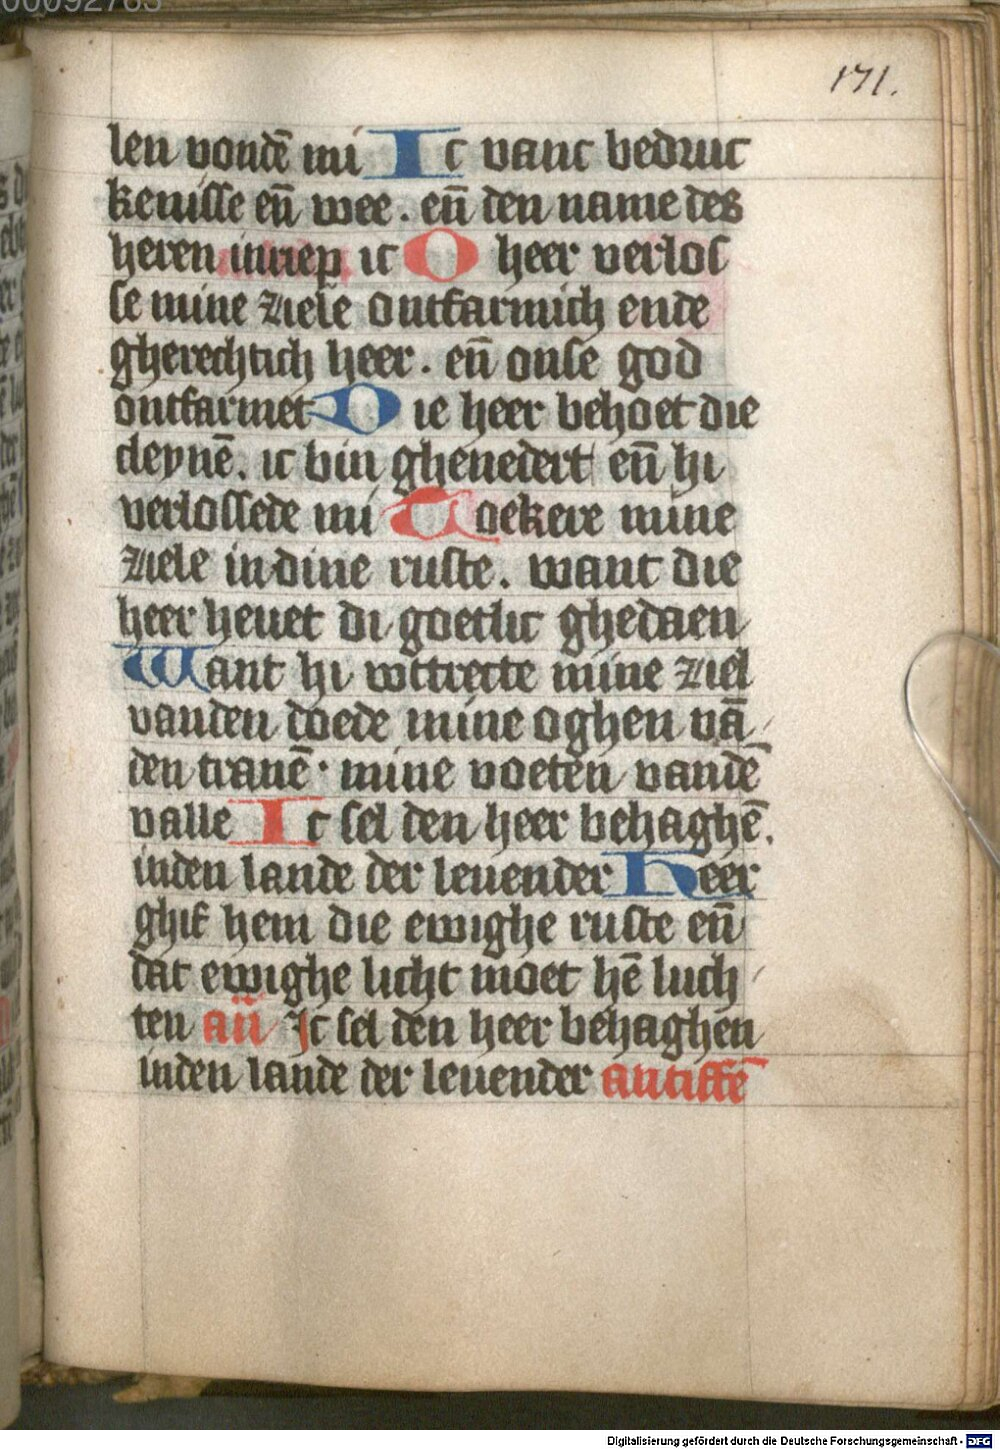 00092763
171.
len vondē mi Ic vant bedruc
kenisse eñ wee. eñ den name des
heren inriep ic O heer verlos
se mine ziele ontfarmich ende
gherechtich heer. eñ onse god
ontfarmet Die heer behoet die
cleynē. ic bin ghenedert eñ hi
verlossede mi Toekere mine
ziele in dine ruste. want die
heer hevet di goetlic ghedaen
Want hi wttrecte mine ziel
vanden doede mine oghen vā
den tranē. mine voeten vandē
valle Ic sel den heer behaghē.
inden lande der levender Heer
ghif hem die ewighe ruste eñ
dat ewighe licht moet hē luch
ten añ Ic sel den heer behaghen
inden lande der levender antiffē
Digitalisierung gefördert durch die Deutsche Forschungsgemeinschaft - DFG